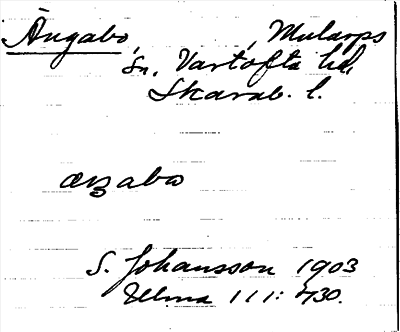 Ängabo, , Mularps
sn, Vartofta hd,
Skarab. l.
æŋabo
S. Johansson 1903
Ulma 111: 430.